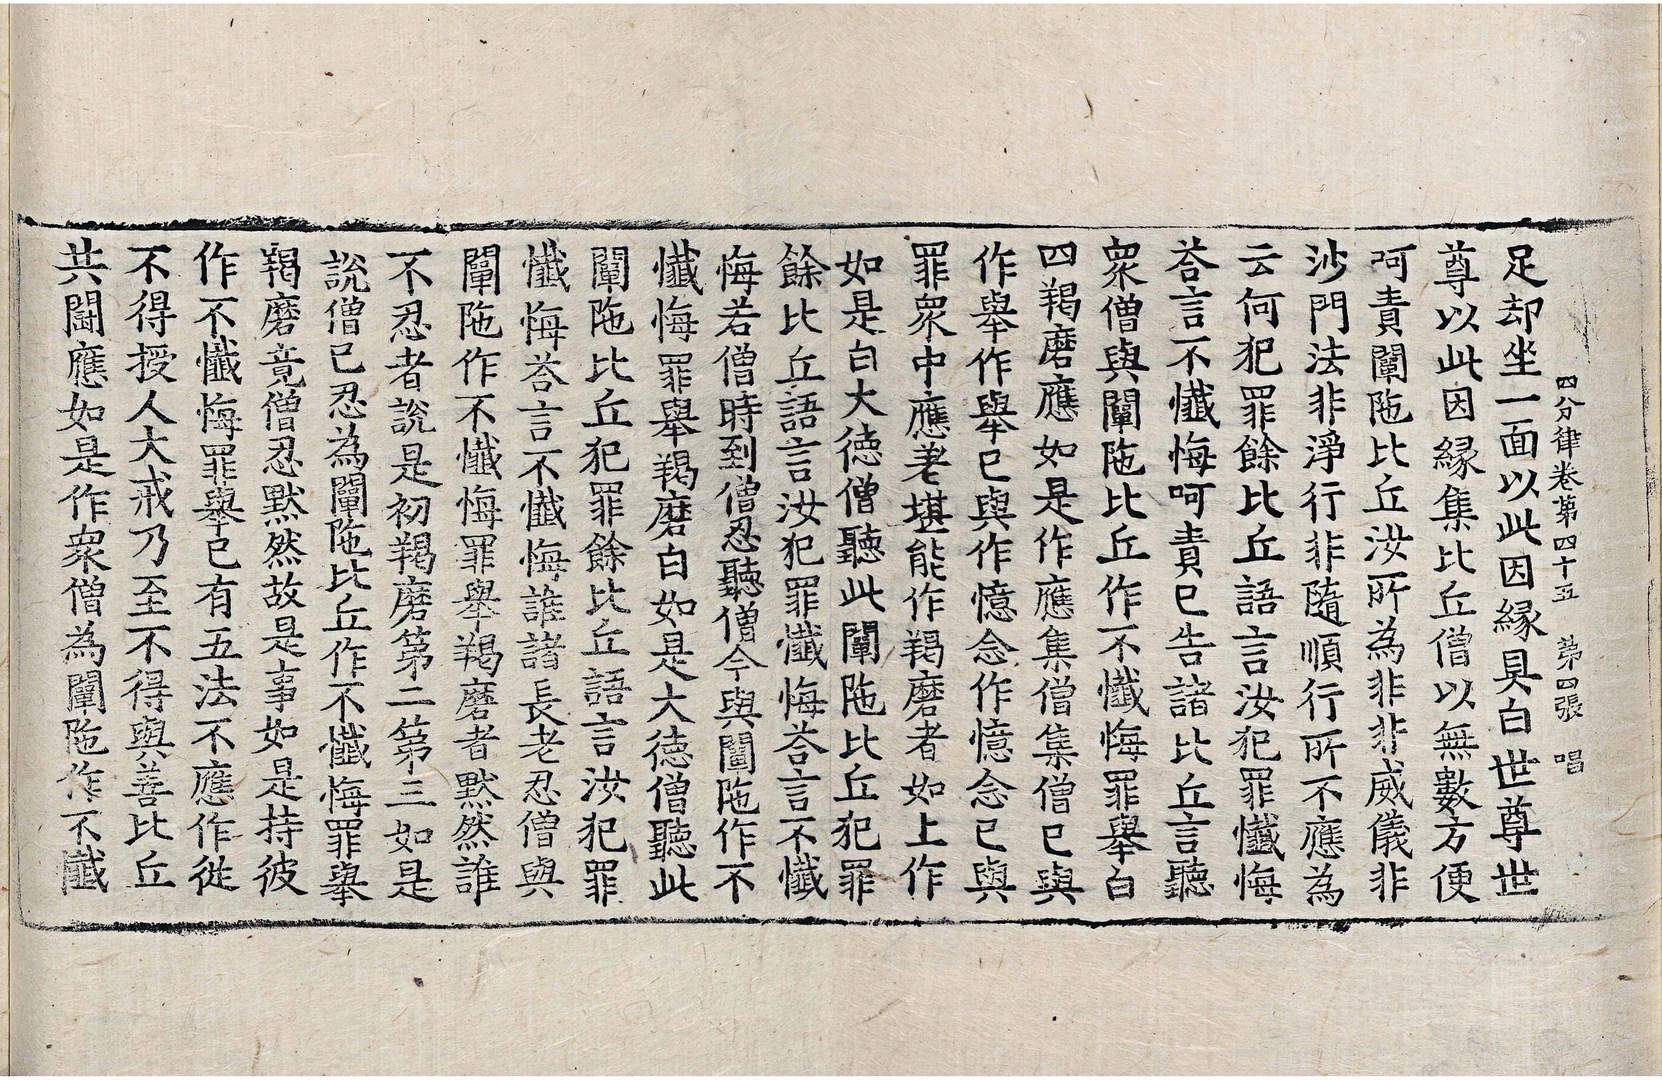 四分律卷第四十五　第四張　唱
足却坐一面以此因緣具白世尊世
尊以此因緣集比丘僧以無數方便
呵責闡陁比丘汝所為非非威儀非
沙門法非淨行非隨順行所不應為
云何犯罪餘比丘語言汝犯罪懺悔
荅言不懺悔呵責已告諸比丘言聽
衆僧與闡陁比丘作不懺悔罪舉白
四羯磨應如是作應集僧集僧已與
作舉作舉已與作憶念作憶念已與
罪衆中應差堪能作羯磨者如上作
如是白大德僧聽此闡陁比丘犯罪
餘比丘語言汝犯罪懺悔荅言不懺
悔若僧時到僧忍聽僧今與闡陁作不
懺悔罪舉羯磨白如是大德僧聽此
闡陁比丘犯罪餘比丘語言汝犯罪
懺悔荅言不懺悔誰諸長老忍僧與
闡陁作不懺悔罪舉羯磨者默然誰
不忍者說是初羯磨第二第三如是
說僧已忍為闡陁比丘作不懺悔罪舉
羯磨竟僧忍默然故是事如是持彼
作不懺悔罪舉已有五法不應作從
不得授人大戒乃至不得與善比丘
共鬪應如是作衆僧為闡陁作不懺